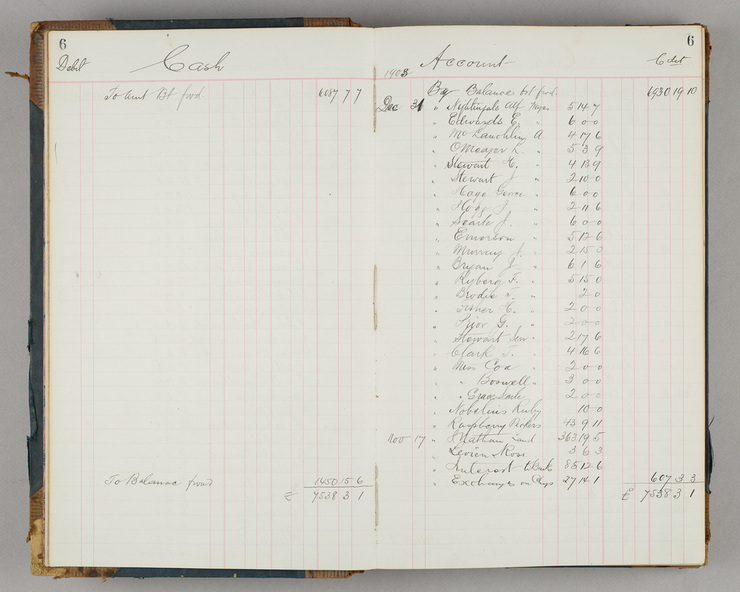 6
Debit Cash
To Amt Bt fwd 6087 7 7
To Balance fwd 1450 15 6
£ 7538 3 1
6
Account Cdit
1903
By Balance bt fwd 6930 19 10
Dec 31 " Nightingale Alf Wages 5 14 7
" Edwards E. " 6 0 0
" McLauchlin A 4 17 6
" O'Meagher L. " 5 3 9
" Stewart H. " 4 13 9
" Stewart J " 2 10 0
" Hage " 6 0 0
" Hogg J " 2 11 6
" Searle J. " 6 0 0
" Emerson " 5 12 6
" Murray J. " 2 15 0
" Bryan J " 6 1 6
" Ryberg F. " 5 15 0
" Brodie " 2 0
" H. " 2 0 0
" G. " 2 0 0
" Stewart " 2 17 6
" Clark " 4 16 6
" Miss Cox " 2 0 0
" " Boswell " 3 0 0
" " 2 0 0
" Ruby 10 0
" Raspberry Pickers 43 9 11
Nov 17 " Land 363 19 5
" 3 6 3
" Interest Bank 85 12 6 607 3 3
" Exchange on Chqs 27 14 1 £ 7538 3 1